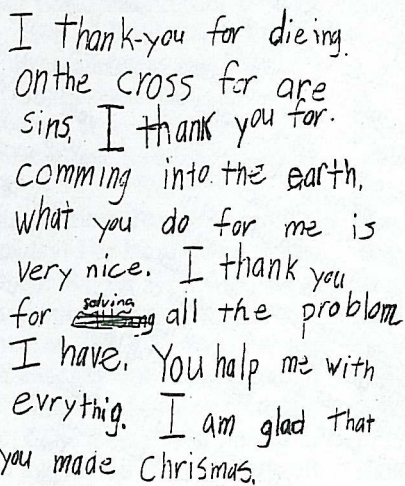 I thank-you for dieing.
on the cross for are
sins. I thank you for.
comming into the earth.
what you do for me is
very nice. I thank you
for solving all the problom
I have. You halp me with
evrythig. I am glad that
you made Chrismas.